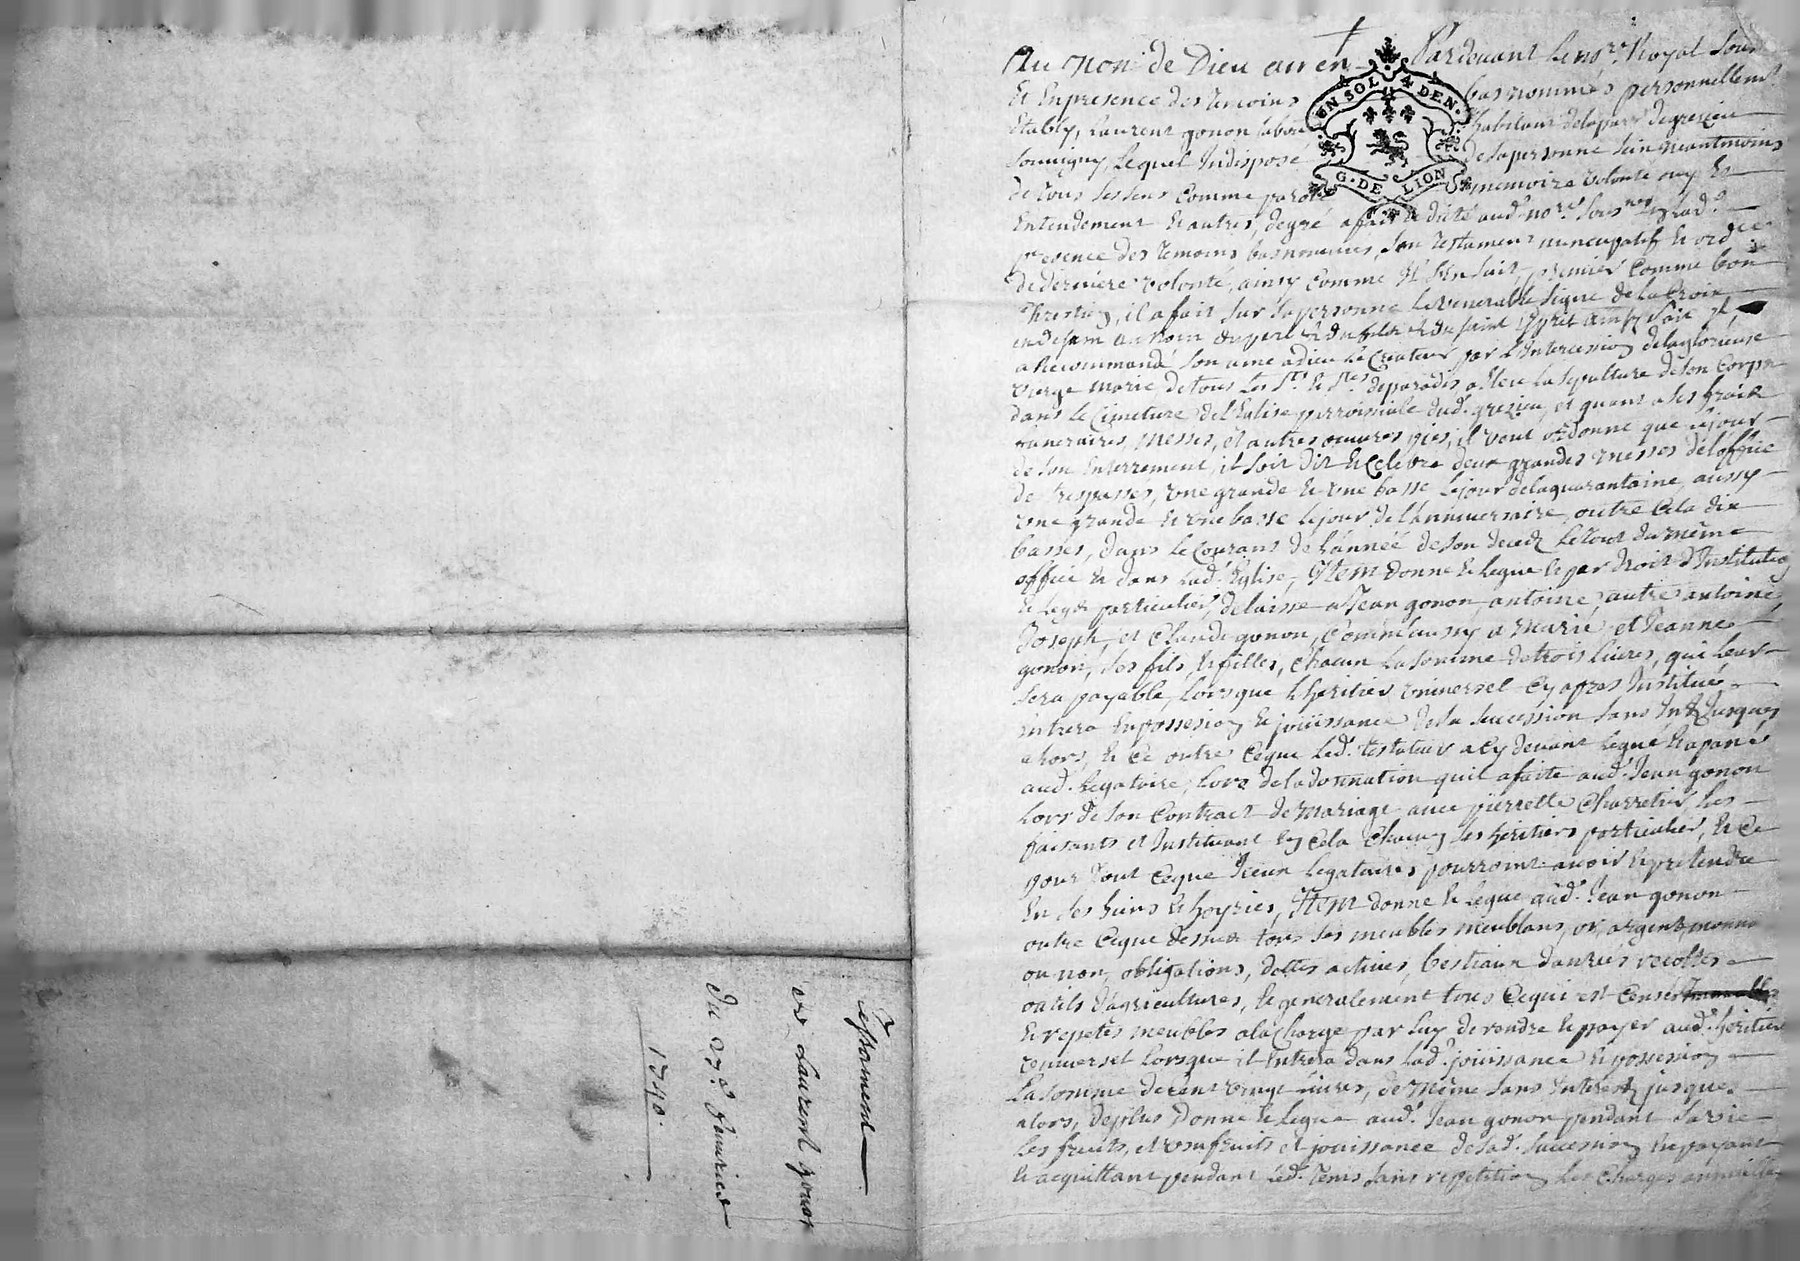 Testament
de Laurent gonon
du 27e. fevrier
1740.
UN SOL 4 DEN.
G. DE LION
Au Nom de Dieu amen Pardevant le nore. Royal sous
et En presence des temoins bas nommés personnellemt.
Etably, Laurent gonon labour habitant de la parr. de grezieu
souvigny, lequel Indisposé de sa personne sain neantmoins
de tous ses sens comme parole memoire volonté ouy Et
Entendement et autres, de gré a fait et dicté aud. nore.
presence des temoins bas nommés, son testament nuncupatif et ordce.
de derniere volonté, ainsy comme il s'En suit, premier comme bon
Chrestien, il a fait sur sa personne le venerable signe de la Croix
en disant au nom du pere et du fils et du saint Esprit ainsy soit il
a Recommandé son ame a dieu le Createur par l'Intercession de la glorieuse
vierge marie de tous les Sts. et Stes. de paradis, a Eleu la sepulture de son Corps
dans le Cimetiere de l'Eglise parroissiale dud. grezieu, et quant a ses fraix
funeraires, messes, et autres oeuvres pies, il veut ordonne que le jour
de son Enterrement, il soit dit et Celebré deux grandes messes de l'office
de trepasses, une grande et une basse le jour de la quarantaine, aussy
une grande et une basse le jour de l'Anniversaire, outre Cela dix
basses, dans le Courans de l'année de son deced le tout du même
office et dans lad. Eglise, Item donne et legue et par droit d'Institution
et legat particulier, delaisse a Jean gonon, antoine, autre antoine,
Joseph, et Claude gonon, Comm'aussy a Marie et Jeanne
gonon, ses fils, et filles, Chacun la somme de trois livres, qui leur
sera payable, lorsque l'heritier universel Cy apres Institué
entrera En possession et joüissance de sa succession sans Int. Jusques
alors, et ce outre Ceque led. testateur a Cy devant legué et apané
aud. legataire, lors de la donnation qu'il a faite aud. Jean gonon
lors de son Contract de Mariage avec pierrette Charretier les
faisants et Instituant en Cela Chacun ses heritiers particulier, et Ce
pour tout Ceque Iceux legataires pourroint avoir et pretendre
En ses biens et hoyries, Item donne et legue aud. Jean gonon
outre Ceque dessus tous ses meubles meublans, or, argent monné
ou non, obligations, dettes actives, bestiaux danrées recoltes
outils d'agricultures, et generalement tous Cequi est Censé
et reputés meubles a la Charge par luy de rendre et payer aud. heritier
universel lorsque il Entrera dans lad. joüissance et possession
la somme de cent vingt livres, de même sans Interest jusque
alors, de plus Donne et legue aud. Jean gonon pendant sa vie
les fruits, et usufruits et jouissance de sad. succession En payant
et acquittant pendant led. tems sans repetition les Charges annuelles